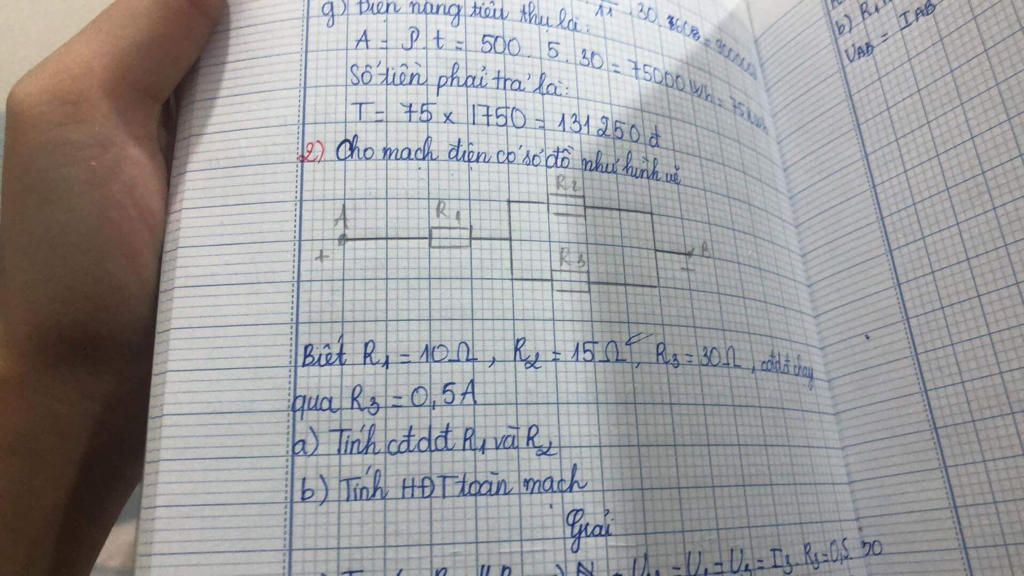 g) Điện năng tiêu thụ là:
A = P.t = 500 . 5 . 30 = 75000 Wh = 75
Số tiền phải trả là:
T = 75 x 1750 = 131250 đ
2) Cho mạch điện có sơ đồ như hình vẽ
R2
A R1
+ R3 B -
Biết R1 = 10Ω, R2 = 15Ω, R3 = 30Ω, cđdđ chạy
qua R3 = 0,5A
a) Tính cđdđ R1 và R2
b) Tính HĐT toàn mạch
Giải
= I3 . R3 = 0,5 . 30
b) R1
UAB = IAB